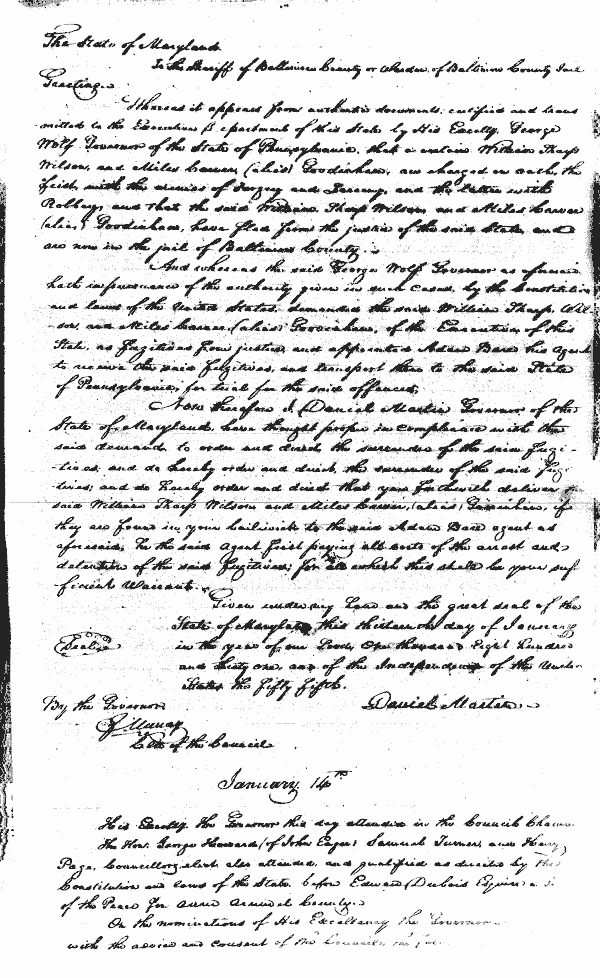 The State of Maryland
To the Sheriff of Baltimore County or Warden of Baltimore County Jail
Greeting.
Whereas it appears from authentic documents, certified and trans
mitted to the Executive Department of this State by His Excelly. George
Wolf Governor of the State of Pennsylvania, that a certain William Tharp
Wilson, and Miles Carver, (alias) Goodenham, are charged in each, the
first, with the crimes of forgery and and the latter with
Robbery, and that the said William Tharp Wilson, and Miles Carver
(alias,) Goodenham, have fled from the justice of the said State, and
are now in the jail of Baltimore County.
And whereas the said George Wolf Governor as aforesaid
hath in pursuance of the authority given in such cases, by the Constitution
and laws of the United States, demanded the said William Tharp Wil-
son, and Miles Carver, (alias) Goodenham, of the Executive of this
State, as fugitives from justice, and appointed Adam Bare his agent
to receive the said fugitives, and transport them to the said State
of Pennsylvania, for trial for the said offences;
Now therefore I, Daniel Martin Governor of the
State of Maryland, have thought proper in compliance with the
said demand, to order and direct the surrender of the said fugi-
tives; and do hereby order and direct the surrender of the said fugi
tives; and do hereby order and direct that you forthwith deliver
said William Tharp Wilson and Miles Carver, (alias) if
they are found in your bailiwick to the said Adam Bare agent as
aforesaid, he the said agent first paying all costs of the arrest and
detention of the said fugitives; for all which this shall be your suf
ficient Warrant.
Given under my hand and the great seal of the
State of Maryland this thirteenth day of January
in the year of our Lord, One thousand Eight Hundred
and thirty one and of the Independence of the United
States the fifty fifth.
By the Governor
Daniel Martin
Murray
Clk of the Council
January 14th
His Excelly. the Governor this day attended in the Council Chamber
The Hon. George Howard (of John Eager) Samuel Turner, and Henry
Page, Councillors elect also attended, and qualified as directed by the
Constitution and laws of the State, before Edward Dubois Esquire a J.
of the Peace for Anne Arundel County.
On the nominations of His Excellency the Governor
with the advice and consent of the Council, the